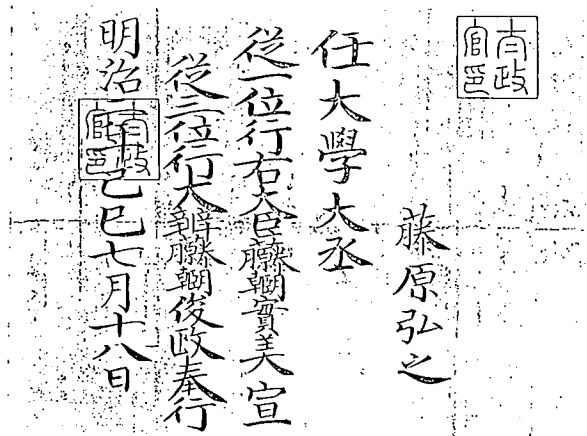 太政官印
藤原弘之
任大學大丞
從一位行右大臣藤原朝臣實美宣
從三位行大辨藤原朝臣俊政奉行
明治二年己巳七月十八日
太政官印